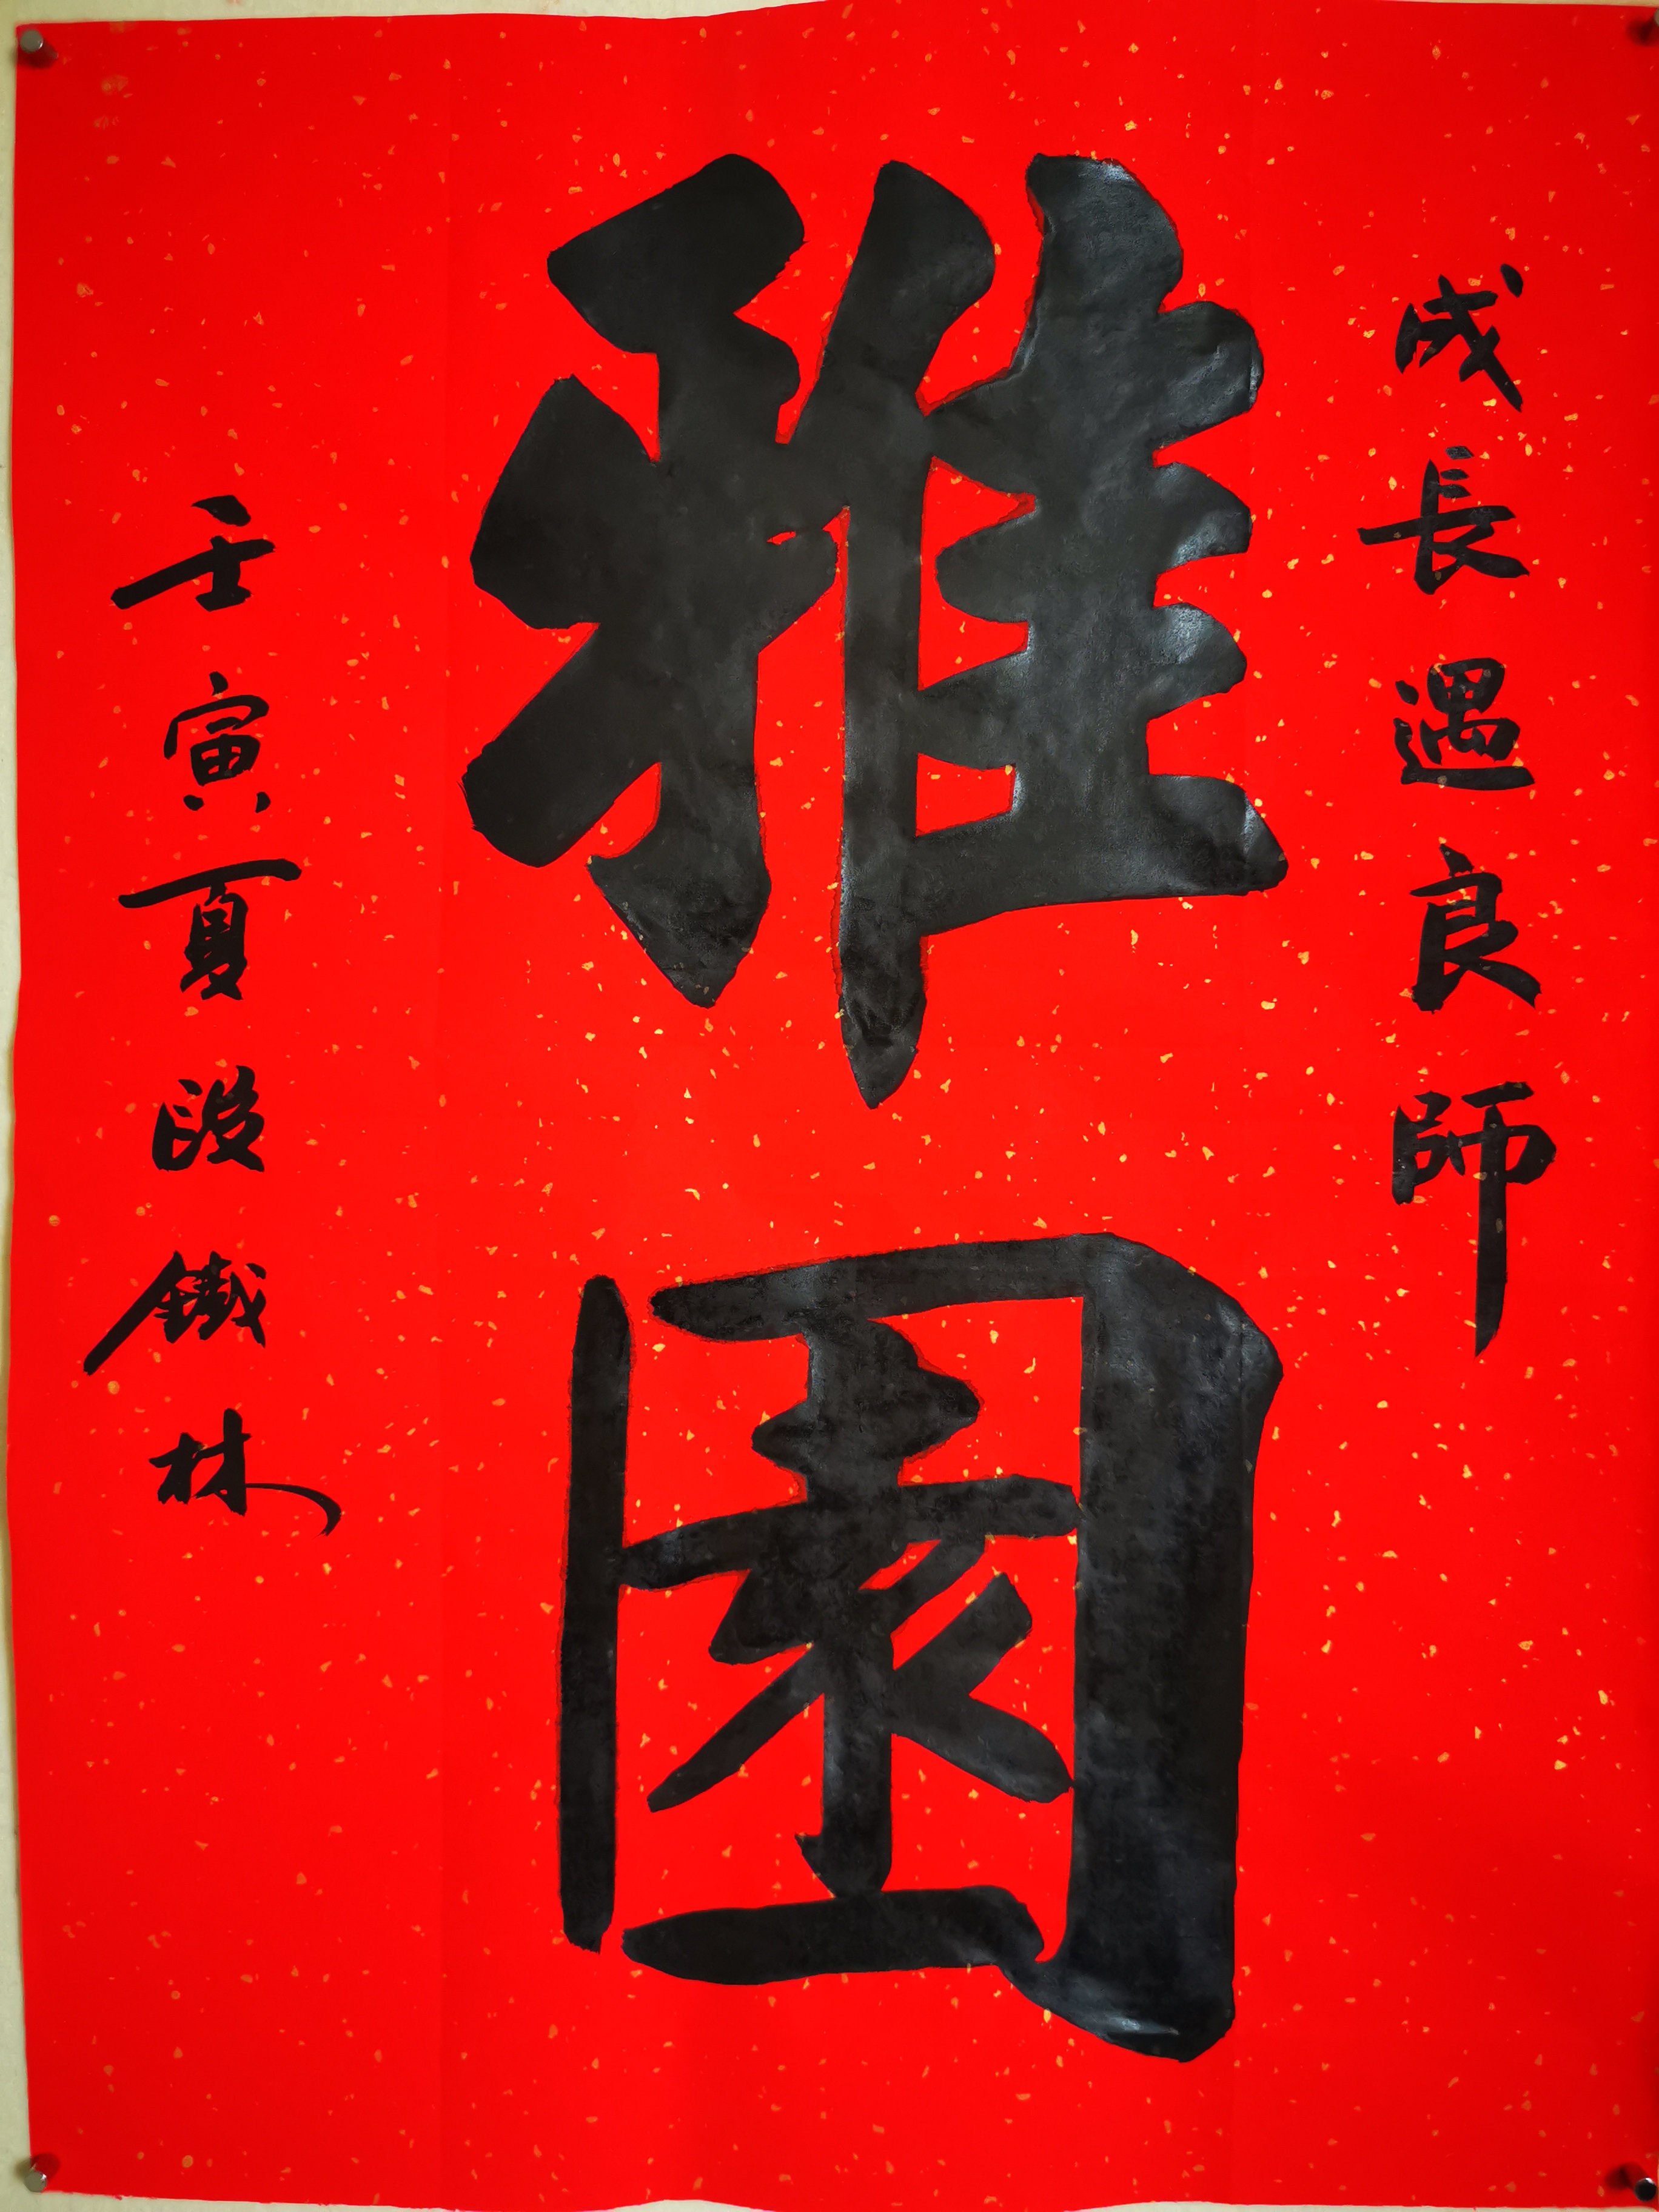 成長遇良師
雅園
壬寅夏段鐵林